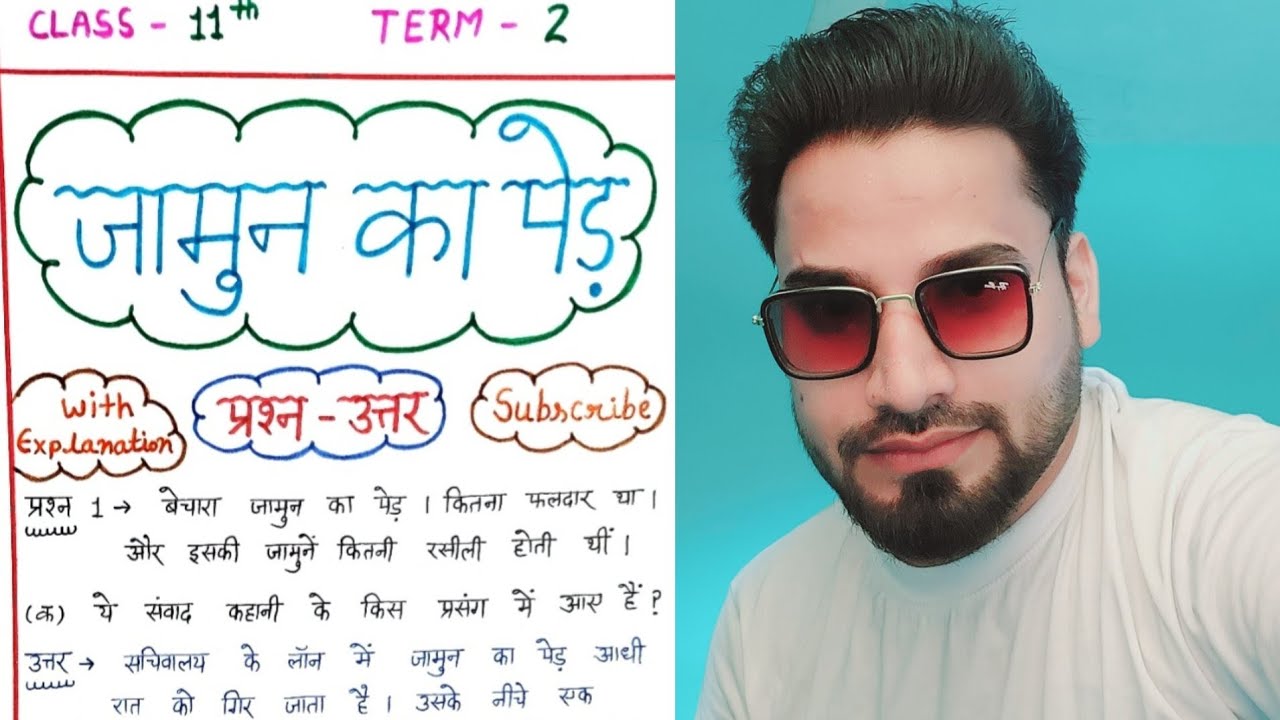 CLASS - 11th TERM - 2
जामुन का पेड़
with
Explanation
प्रश्न - उत्तर
Subscribe
प्रश्न 1 → बेचारा जामुन का पेड़ । कितना फलदार था ।
और इसकी जामुनें कितनी रसीली होती थीं ।
(क) ये संवाद कहानी के किस प्रसंग में आए हैं ?
उत्तर → सचिवालय के लॉन में जामुन का पेड़ आधी
रात को गिर जाता है । उसके नीचे एक
Ray-Ban